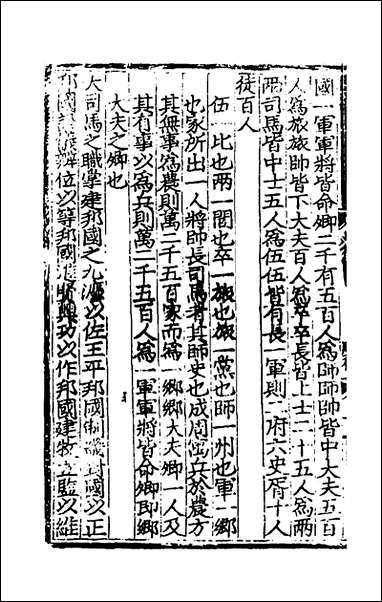 國一軍軍將皆命卿二千有五百人爲師師帥皆中大夫五百
人爲旅旅帥皆下大夫百人爲卒卒長皆上士二十五人爲兩
兩司馬皆中士五人爲伍伍皆有長一軍則二府六史胥十人
徒百人
伍一比也兩一閭也卒一族也旅一黨也師一州也軍一鄉
也家所出一人將帥長司馬者其師吏也成周寓兵於農方
其無事爲農則萬二千五百家而爲一鄉鄉大夫卿一人及
其有事以爲兵則萬二千五百人爲一軍軍將皆命卿即鄉
大夫之卿也
大司馬之職掌建邦國之九灋以佐王平邦國制畿封國以正
邦國設儀辨位以等邦國進賢興功以作邦國建牧立監以維